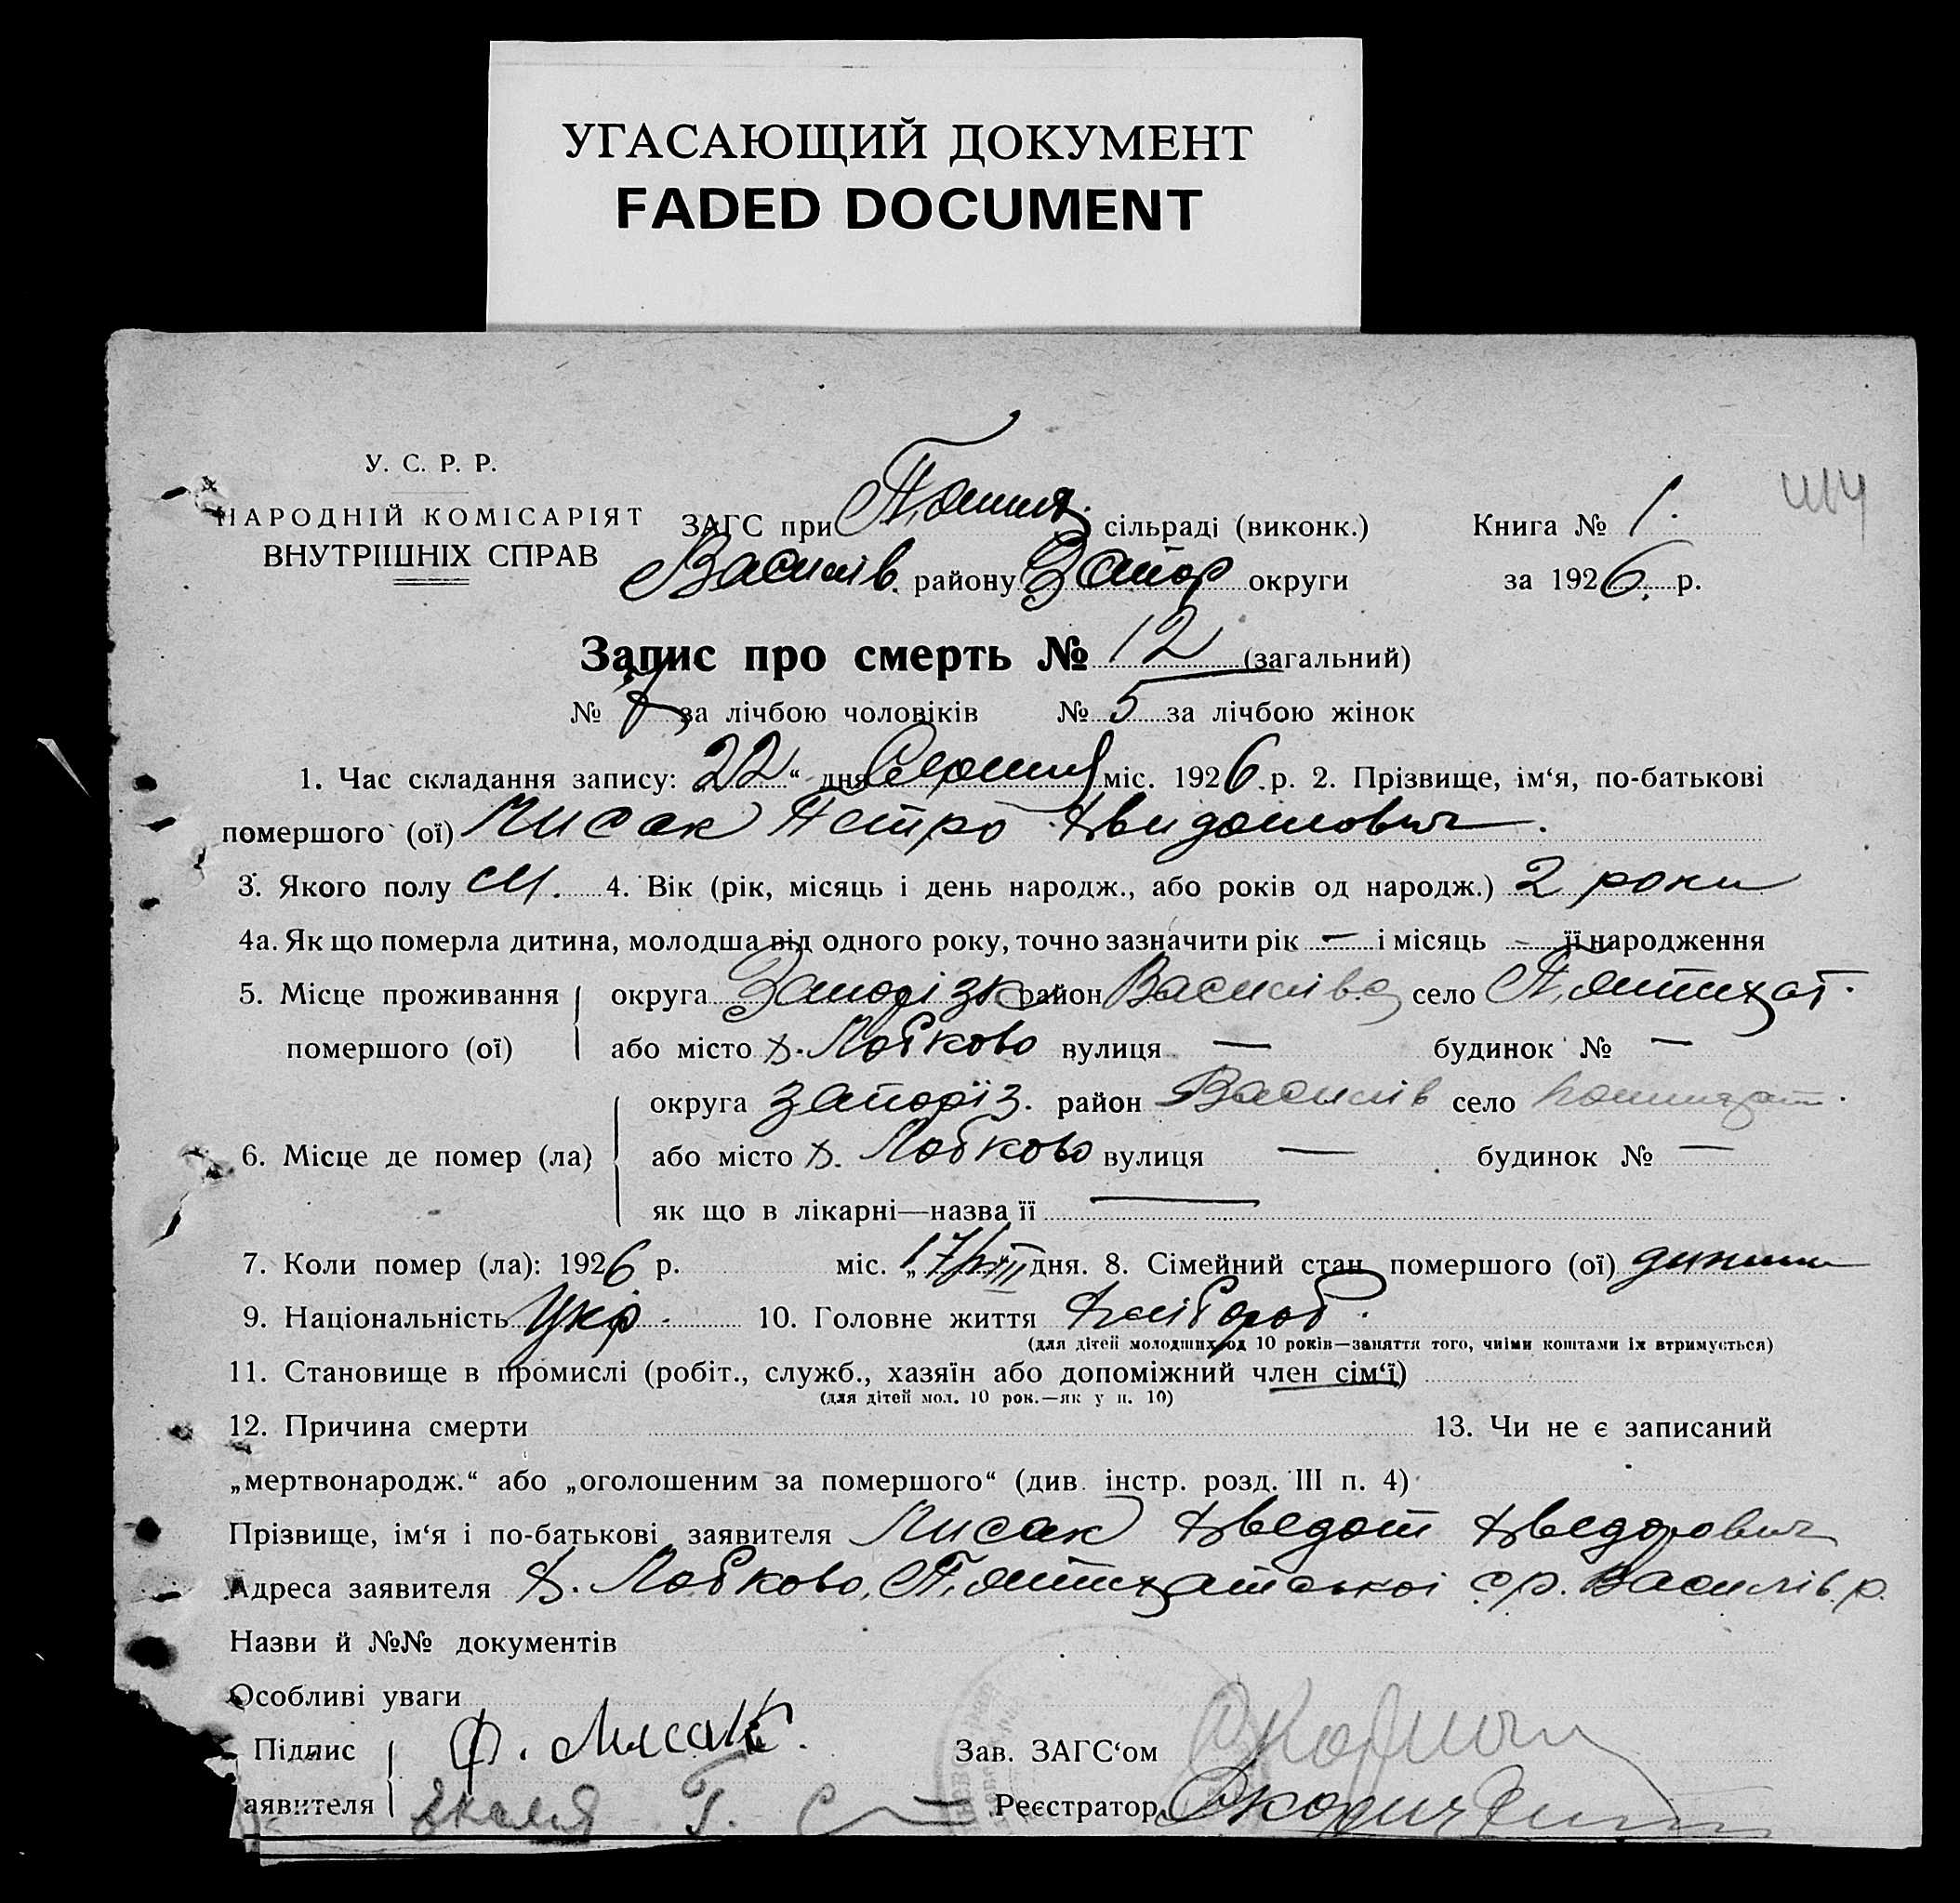 УГАСАЮЩИЙ ДОКУМЕНТ
FADED DOCUMENT
У. С. Р. Р.
НАРОДНІЙ КОМІСАРІЯТ
ВНУТРІШНІХ СПРАВ
ЗАГС при сільраді (виконк.) Книга № 1.
Василів. району Запор округи за 1926. р.
Запис про смерть № 12 (загальний)
№ 7 за лічбою чоловіків № 5 за лічбою жінок
1. Час складання запису: „22“ дня Серпня міс. 1926 р. 2. Прізвище, ім‘я, по-батькові
помершого (ої) Лисак Петро Хвидотович.
3. Якого полу М. 4. Вік (рік, місяць і день народж., або років од народж.) 2 роки
4а. Як що померла дитина, молодша від одного року, точно зазначити рік — і місяць – її народження
5. Місце проживання округа Запорізк район Василівс село П'ятихат.
помершого (ої) або місто х. Лобково вулиця — будинок № —
округа Запоріз. район Василів село
6. Місце де помер (ла) або місто х. Лобково вулиця — будинок № —
як що в лікарні—назва її —
7. Коли помер (ла): 1926 р. міс. „17/VIII дня. 8. Сімейний стан помершого (ої) дитина
9. Національність Укр. 10. Головне життя Хлібороб.
(для дітей молодших од 10 років—заняття того, чиїми коштами їх втримується)
11. Становище в промислі (робіт., служб., хазяїн або допоміжний член сім‘ї)
(для дітей мол. 10 рок.—як у п. 10)
12. Причина смерти 13. Чи не є записаний
„мертвонародж.“ або „оголошеним за помершого“ (див. інстр. розд. III п. 4)
Прізвище, ім‘я і по-батькові заявителя Лисак Хведот Хведорович
Адреса заявителя х. Лобково, П'ятихатської с.р. Василів. р.
Назви й №№ документів
Особливі уваги
Підпис Ф. Лисак. Зав. ЗАГС‘ом
аявителя Реєстратор